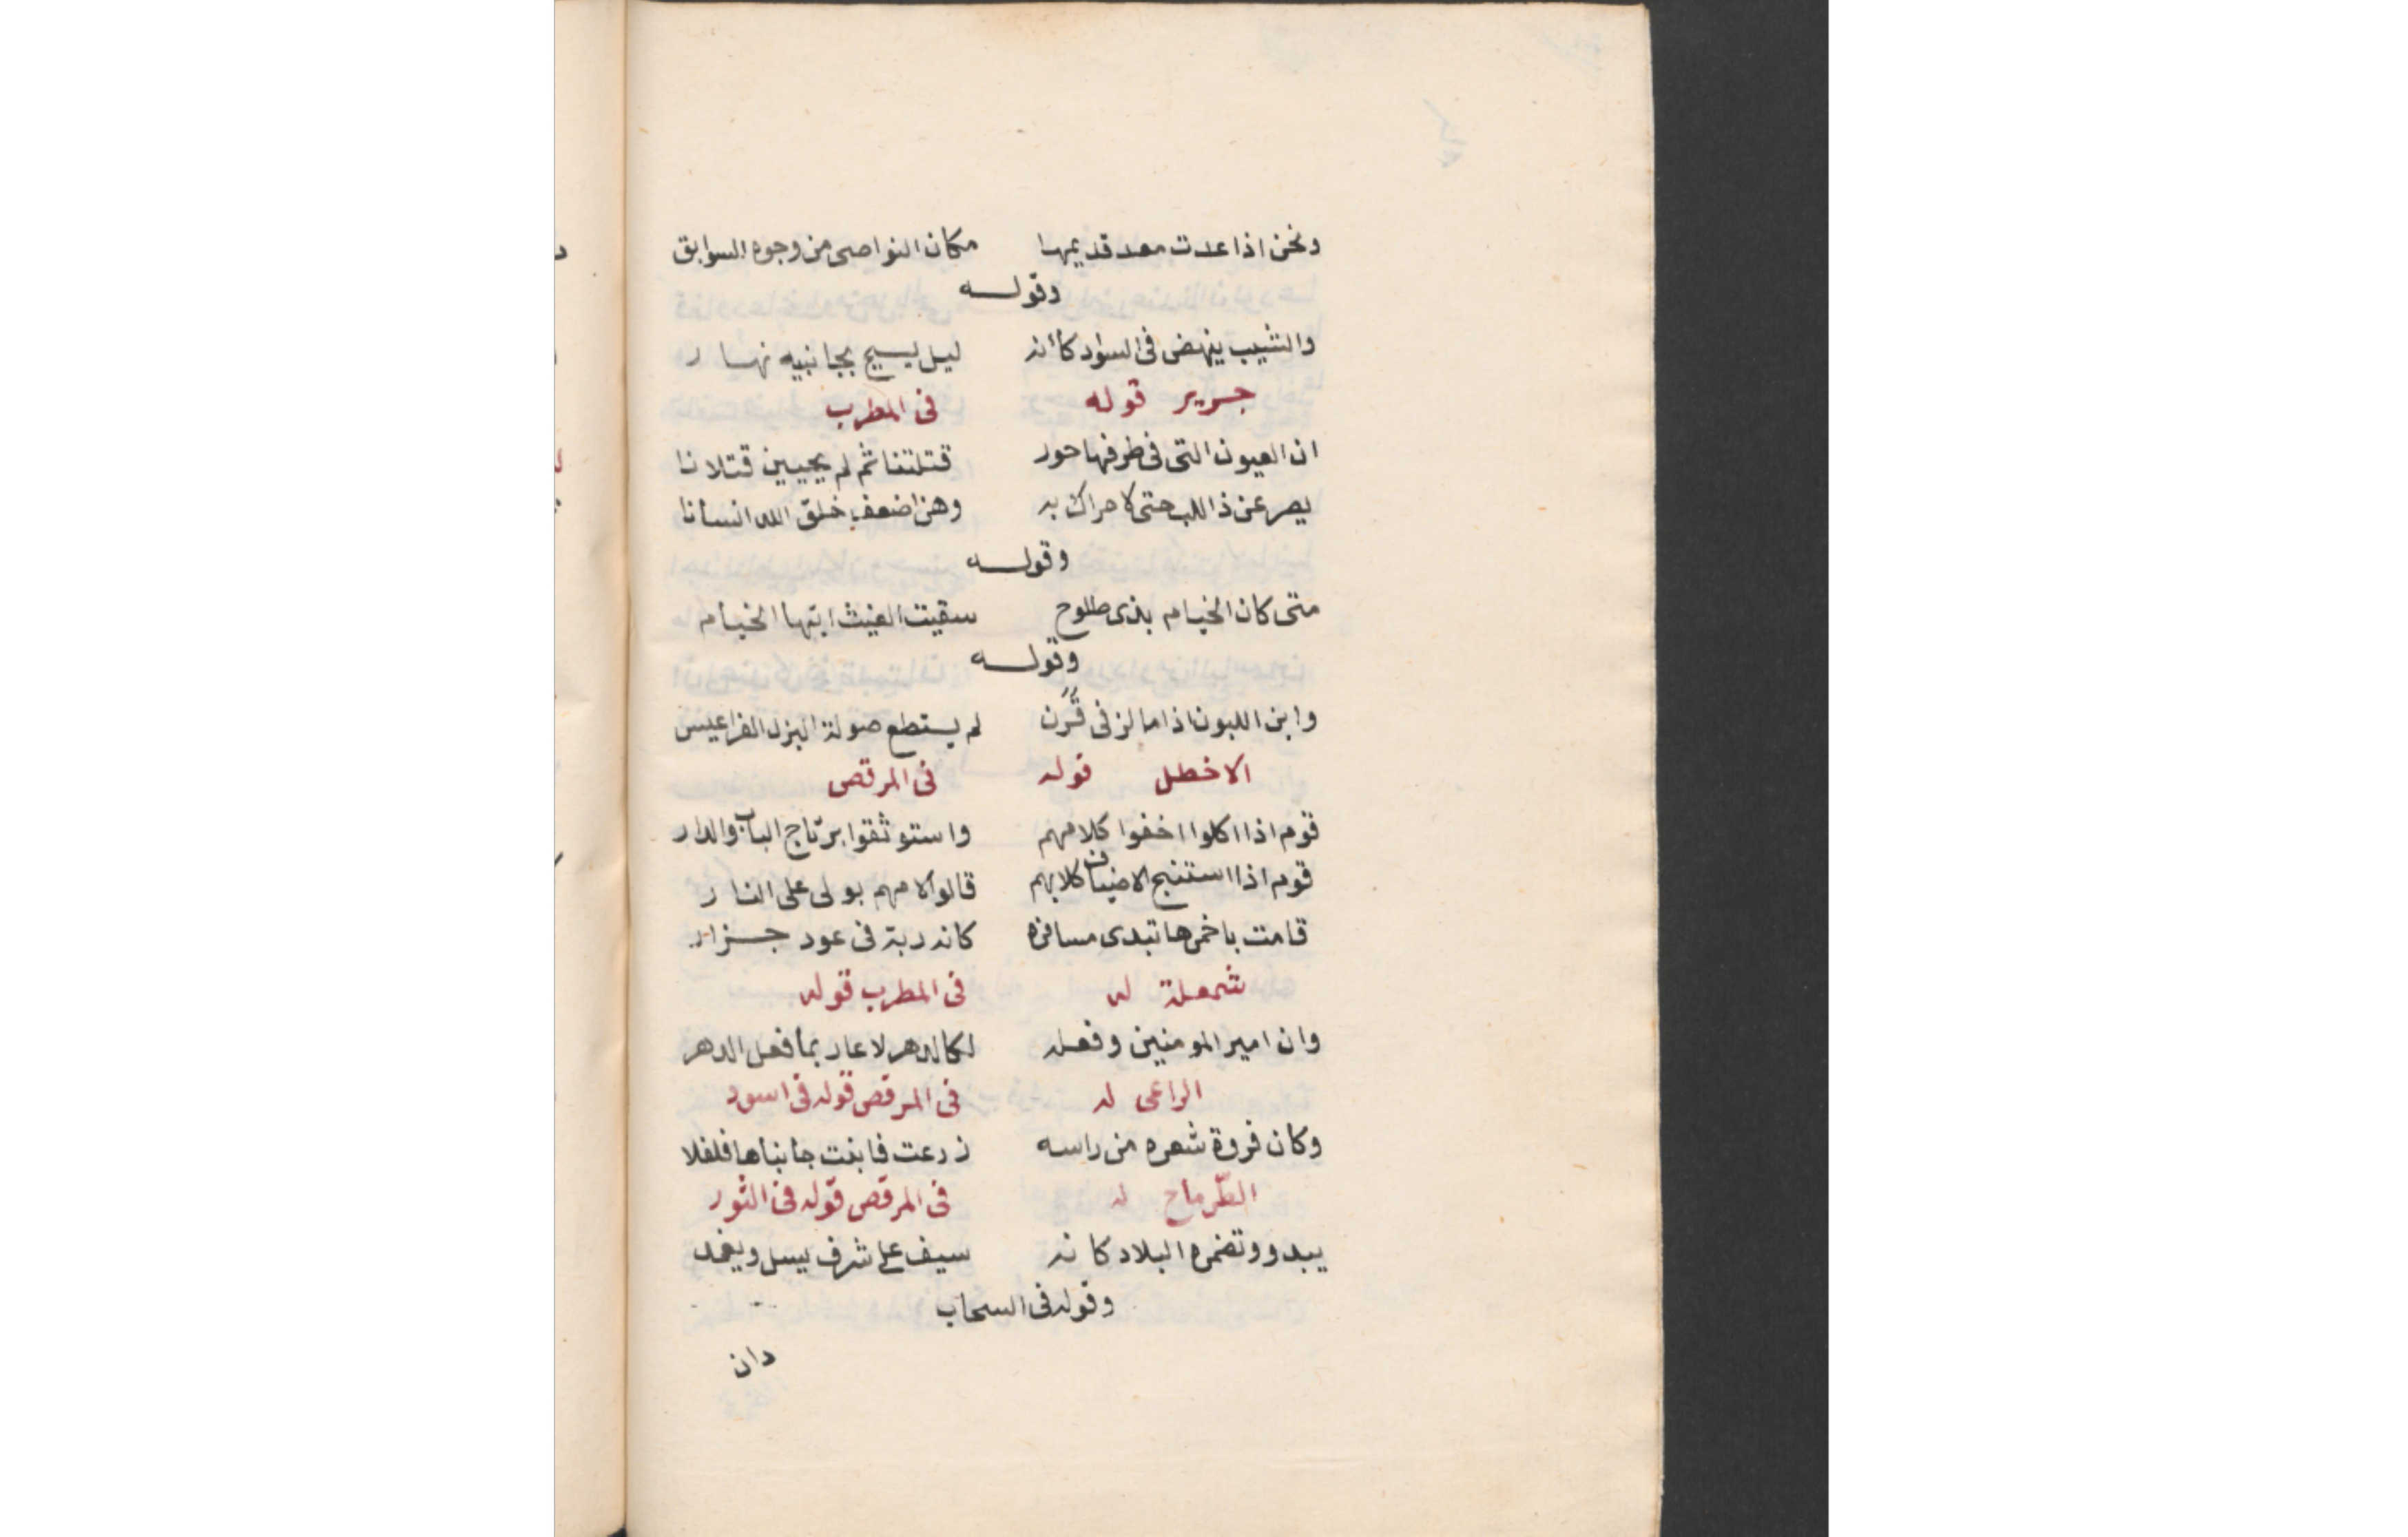 ونحن اذا عدت معد قديمها مكان النواصى من وجوه السوابق
وقولـــه
والشيب ينهض فى السواد كأنه ليل يسيح بجانبيه نهار
جرير قوله فى المطرب
ان العيون التى فى طرفها حور قتلتنا ثم لم يحيين قتلانا
يصرعن ذا اللب حتى لا حراك به وهن اضعف خلق الله انسانا
وقولـــه
متى كان الخيام بذى طلوح سقيت الغيث ايتها الخيام
وقولـــه
وابن اللبون اذا ما لز فى قرن لم يستطع صولة البزل القراعيس
الاخطل قوله فى المرقص
قوم اذا اكلوا اخفوا كلامهم واستوثقوا برتاج الباب والدار
قوم اذا استنبح الاضياف كلابهم قالوا لامهم بولى على النار
قامت تبدى كانه ربة فى عود جزار
شمعلة له فى المطرب قوله
وان امير المومنين وفعله لكالدهر لا عار بما فعل الدهر
الراعى له فى المرقص قوله فى اسود
وكان فروة شعره من راسه زرعت فابنت جانباها فلفلا
الطّرماح له فى المرقص قوله فى الثور
يبدو وتضمره البلاد كانه سيف على شرف يسل ويغمد
وقوله فى السحاب
دان